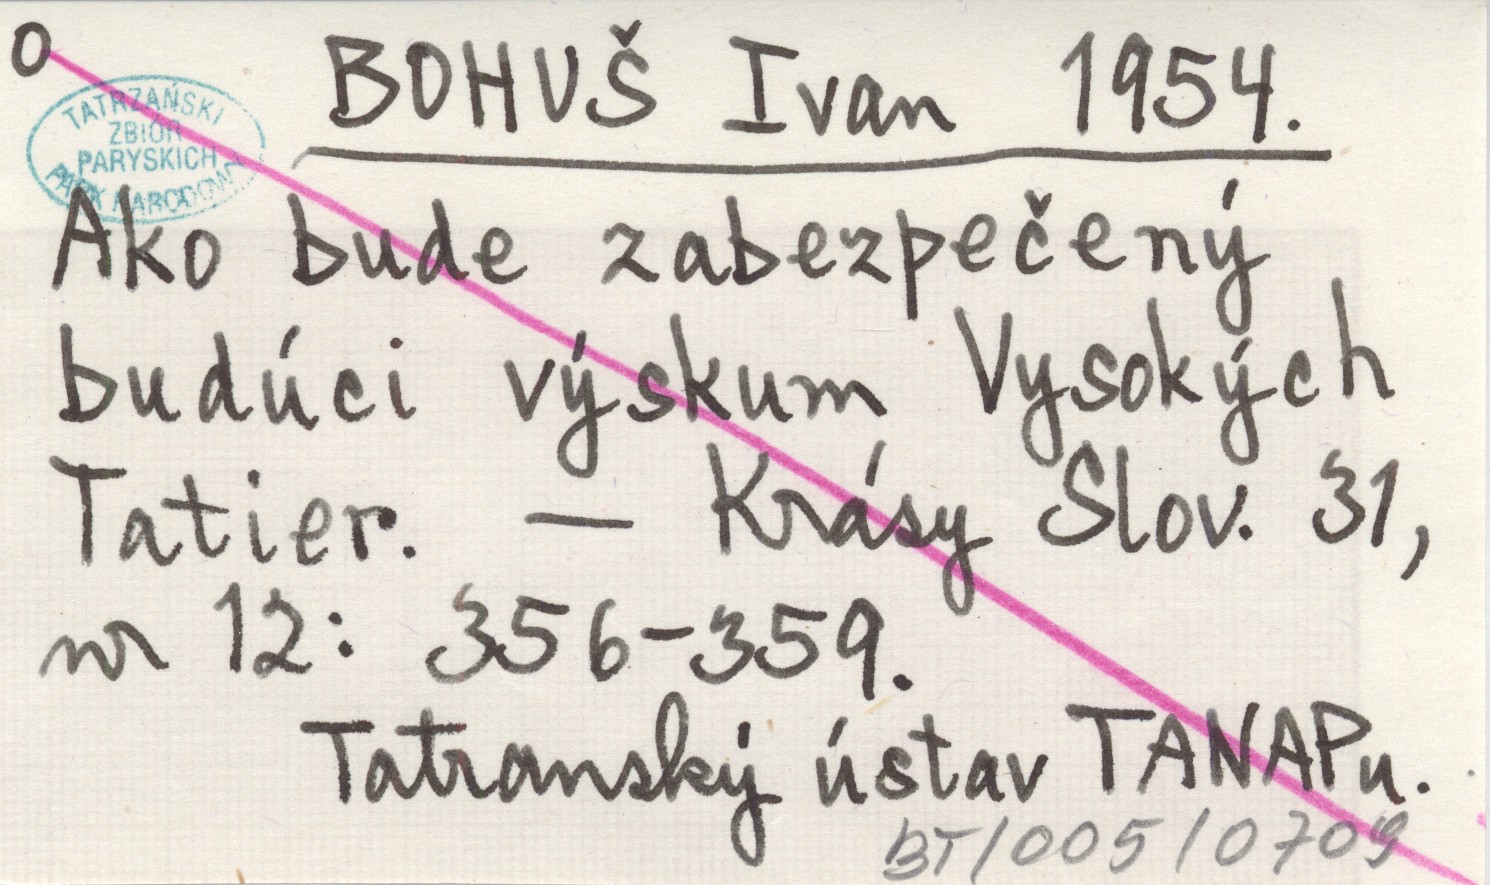 O
BOHUŠ Ivan 1954.
TATRZAŃSKI
ZBIÓR
PARYSKICH
PARK NARODOWY
Ako bude zabezpečený
budúci výskum Vysokých
Tatier. — Krásy Slov. 31,
nr 12: 356-359.
Tatranský ústav TANAPu.
BT/005/0709